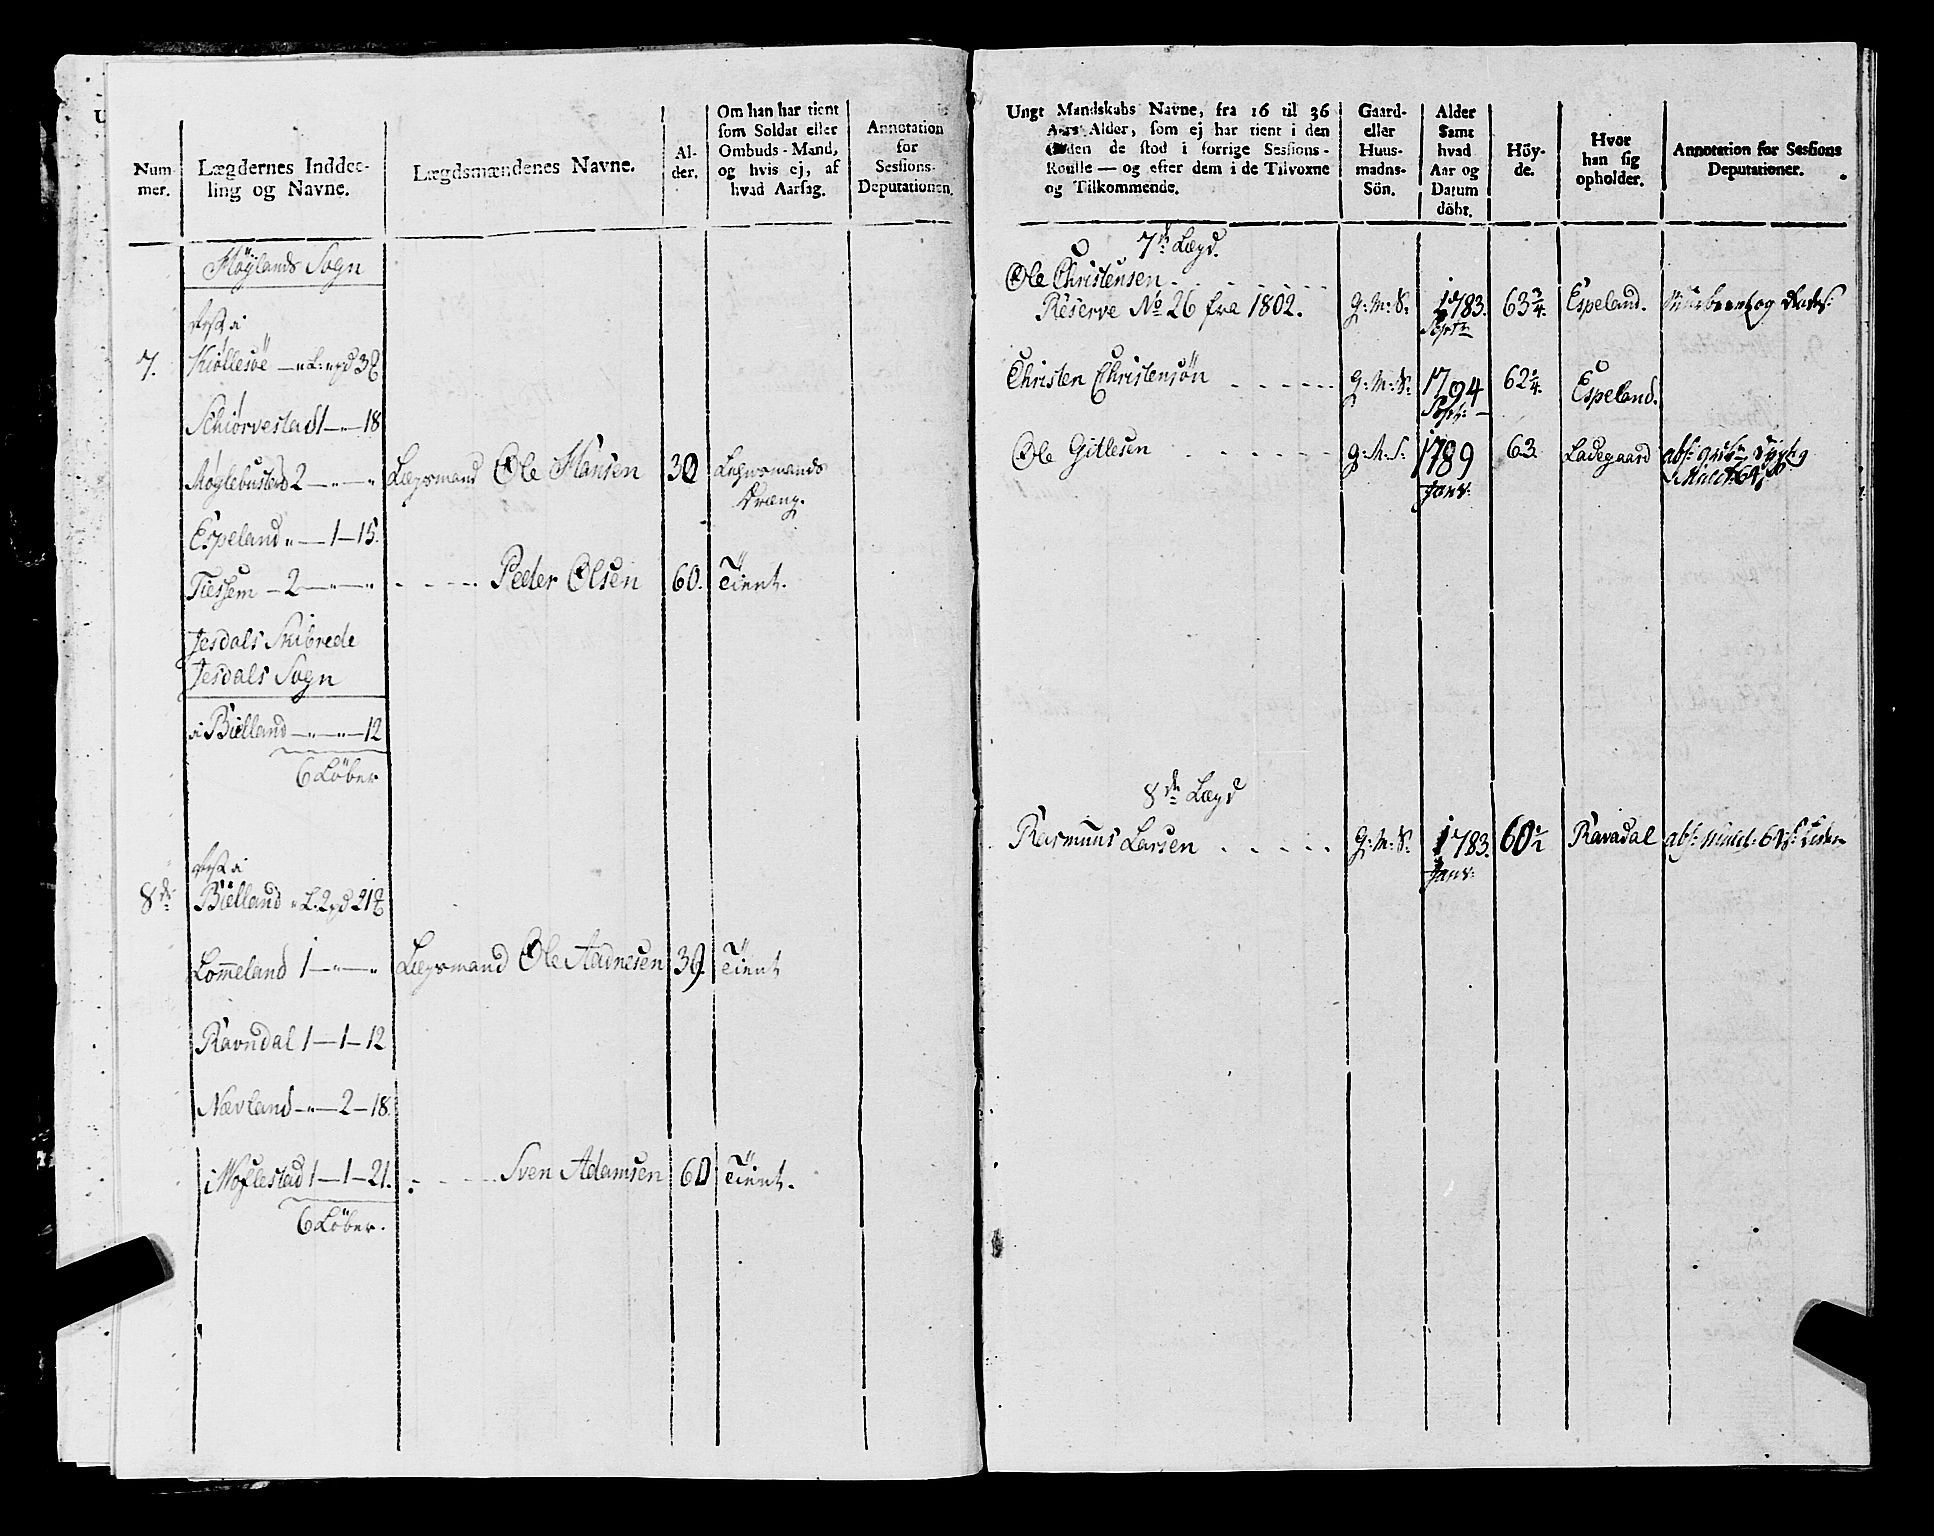 Num-
mer.
Lægdernes Inddee-
ling og Navne.
Lægdsmændenes Navne.
Al-
der.
Om han har tient
som Soldat eller
Ombuds-Mand,
og hvis ej, af
hvad Aarsag.
Annotation
for
Sessions-
Deputationen.
Höylands Sogn
7.
Schiørvestad 1 — " — 18
Lægsmand Ole Hansen 30 Lehnsmands
Dræng.
Espeland " — 1 — 15.
Tiessem — 2 — " — " - - - - Peder Olsen 60. Tient.
Jesdals Skibrede
Jesdals Sogn
i Bielland — " — " — 12
6 Löber
8de
Bielland
Lom̄eland 1 — " — " Lægsmand Ole Aadnesen 39. Tient
Ravndal 1 — 1 — 12
Nævland — " — 2 — 18.
1 — 1 — 21. - - - - Sven Adamsen 60 Tient.
6 Löber.
Ungt Mandskabs Navne, fra 16 til 36
Aars Alder, som ej har tient i den
Orden de stod i forrige Sessions-
Roulle — og efter dem i de Tilvoxne
og Tilkommende.
Gaard-
eller
Huus-
mands-
Sön.
Alder
Samt
hvad
Aar og
Datum
döbt.
Höy-
de.
Hvor
han sig
opholder.
Annotation for Sessions
Deputationer.
7de Lægd.
Ole Christensen
Reserve No 26 fra 1802. G: M: S: 1783. 63 3/4. Espeland.
Septr
Christen Christensön G: M: S: 1794 62 Espeland.
Sept:
Ole Gitlesen G: M: S: 1789 63 Ladegaard
Janv:
8de Lægd
Rasmuus Larsen G: M: S: 1783. 60 1/2 Ravndal
Janv: